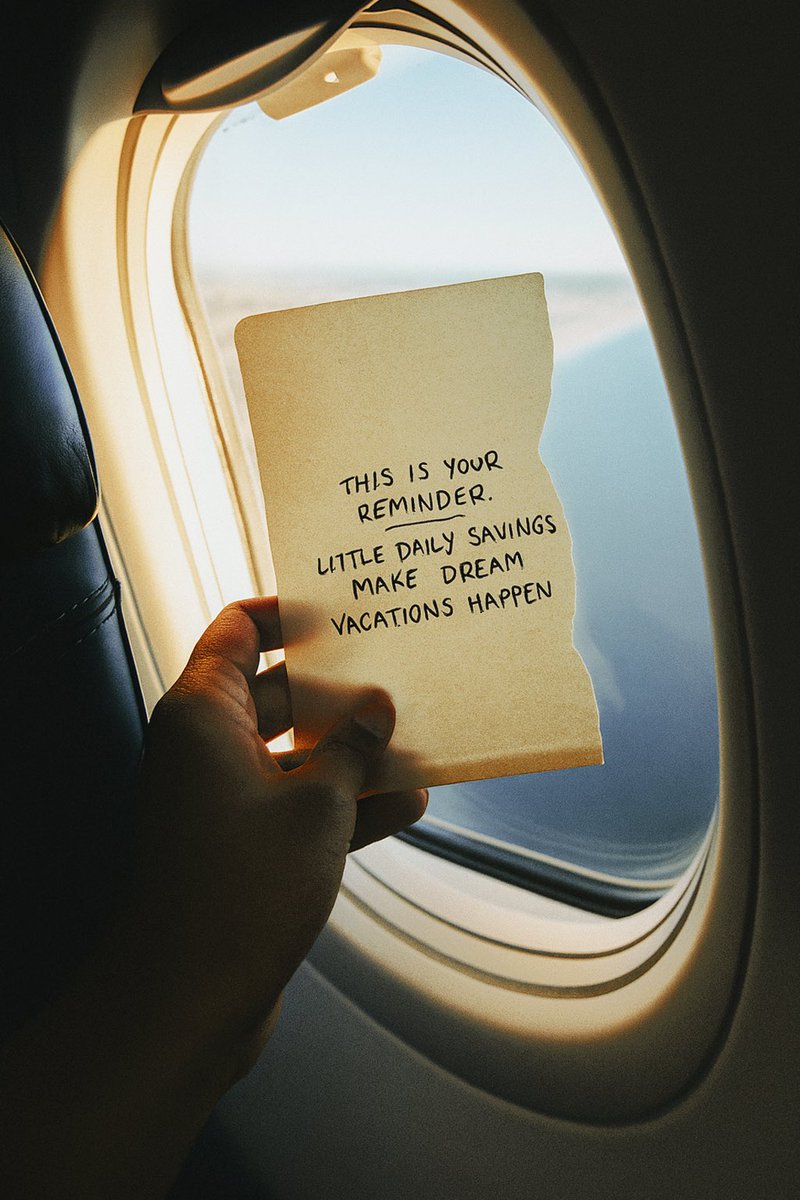 THIS IS YOUR
REMINDER.
LITTLE DAILY SAVINGS
MAKE DREAM
VACATIONS HAPPEN